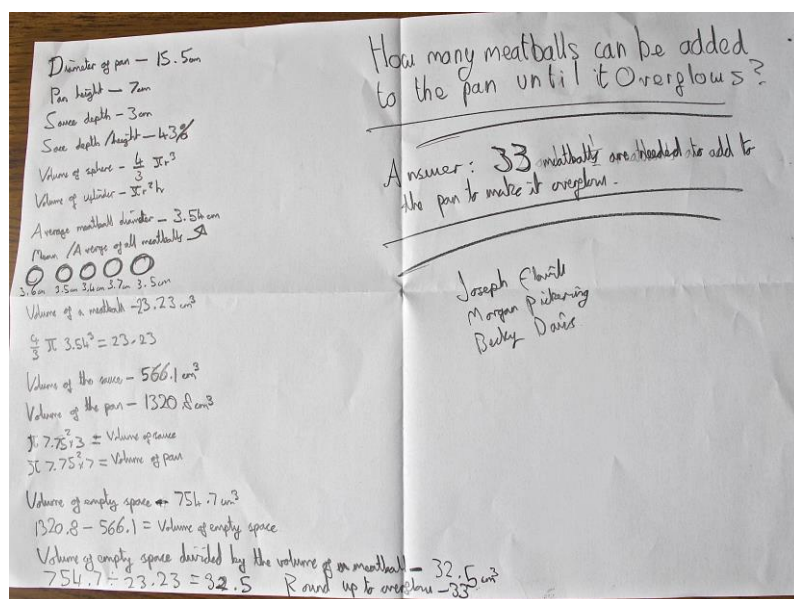 Diameter of pan - 15.5cm
Pan height - 7cm
Sauce depth - 3cm
Sauce depth/height - 43%
Volume of sphere - 4/3 πr³
Volume of cylinder - πr²h
Average meatball diameter - 3.54cm
Mean/Average of all meatballs
3.6cm 3.5cm 3.4cm 3.7cm 3.5cm
Volume of a meatball - 23.23 cm³
4/3 π 3.54³ = 23.23
Volume of the sauce - 566.1 cm³
Volume of the pan - 1320.8 cm³
π 7.75² × 3 = Volume of sauce
π 7.75² × 7 = Volume of pan
Volume of empty space - 754.7 cm³
1320.8 - 566.1 = Volume of empty space
Volume of empty space divided by the volume of a meatball - 32.5 cm³
754.7 ÷ 23.23 = 32.5 Round up to overflow - 33
How many meatballs can be added
to the pan until it Overflows?
Answer: 33 meatballs are needed to add to
the pan to make it overflow.
Joseph
Morgan Pickering
Becky Davis